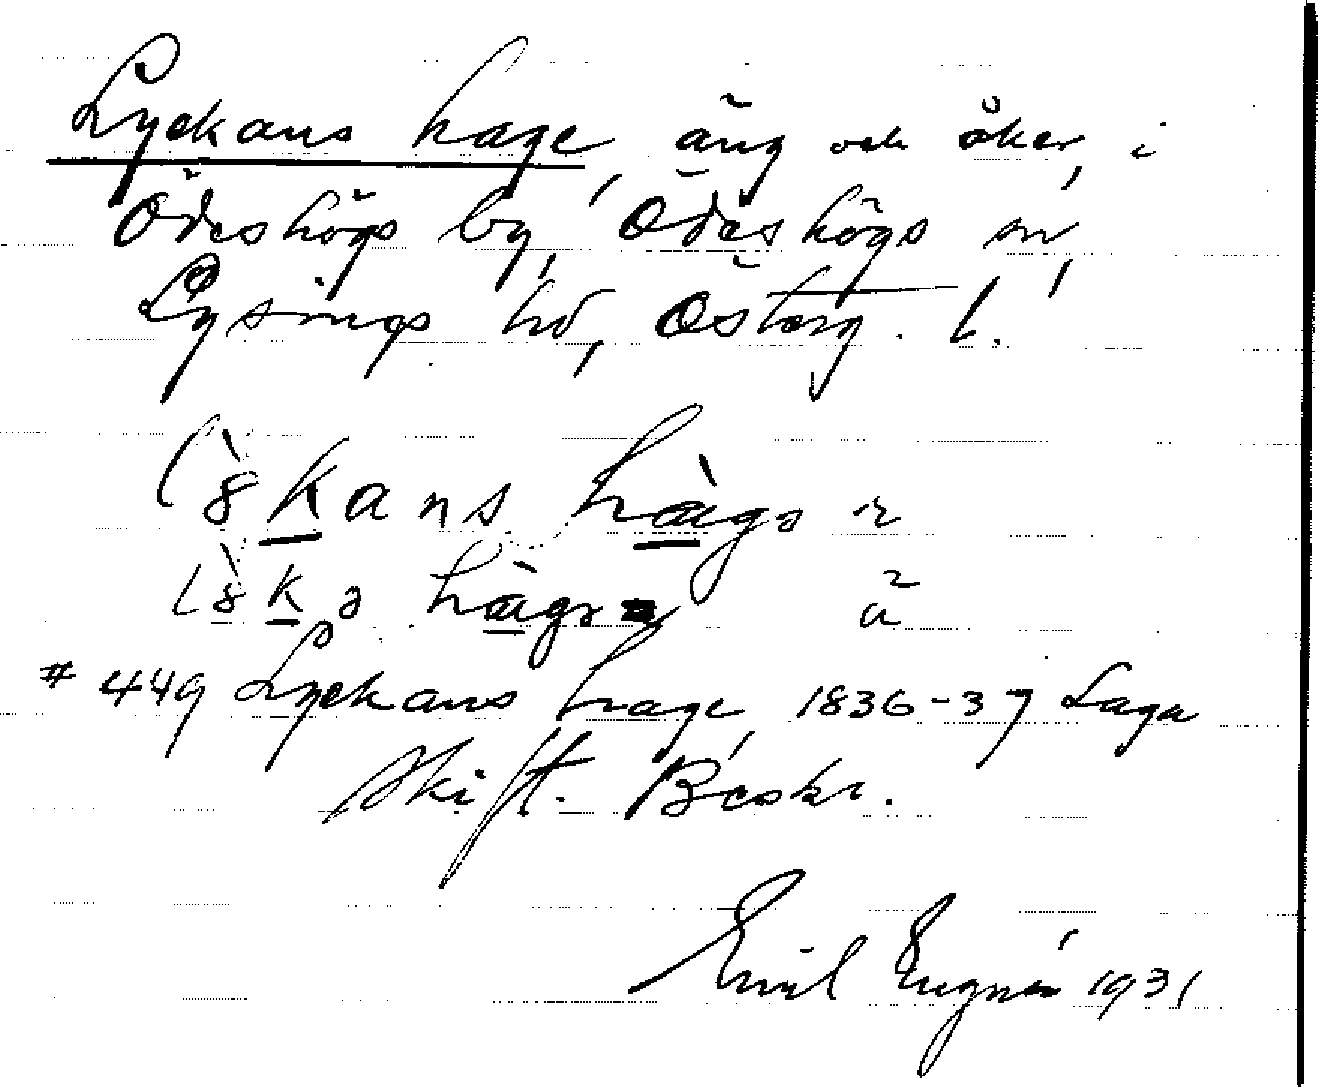 Lyckans hage, äng och åker, i
Ödeshögs by, Ödeshögs sn,
Lysings hd, Österg. l.
l`8kans hàgə r
l`8kə hàgə ã
# 449 Lyckans hage, 1836-37 Laga
skift. Beskr.
Emil Engnér 1931